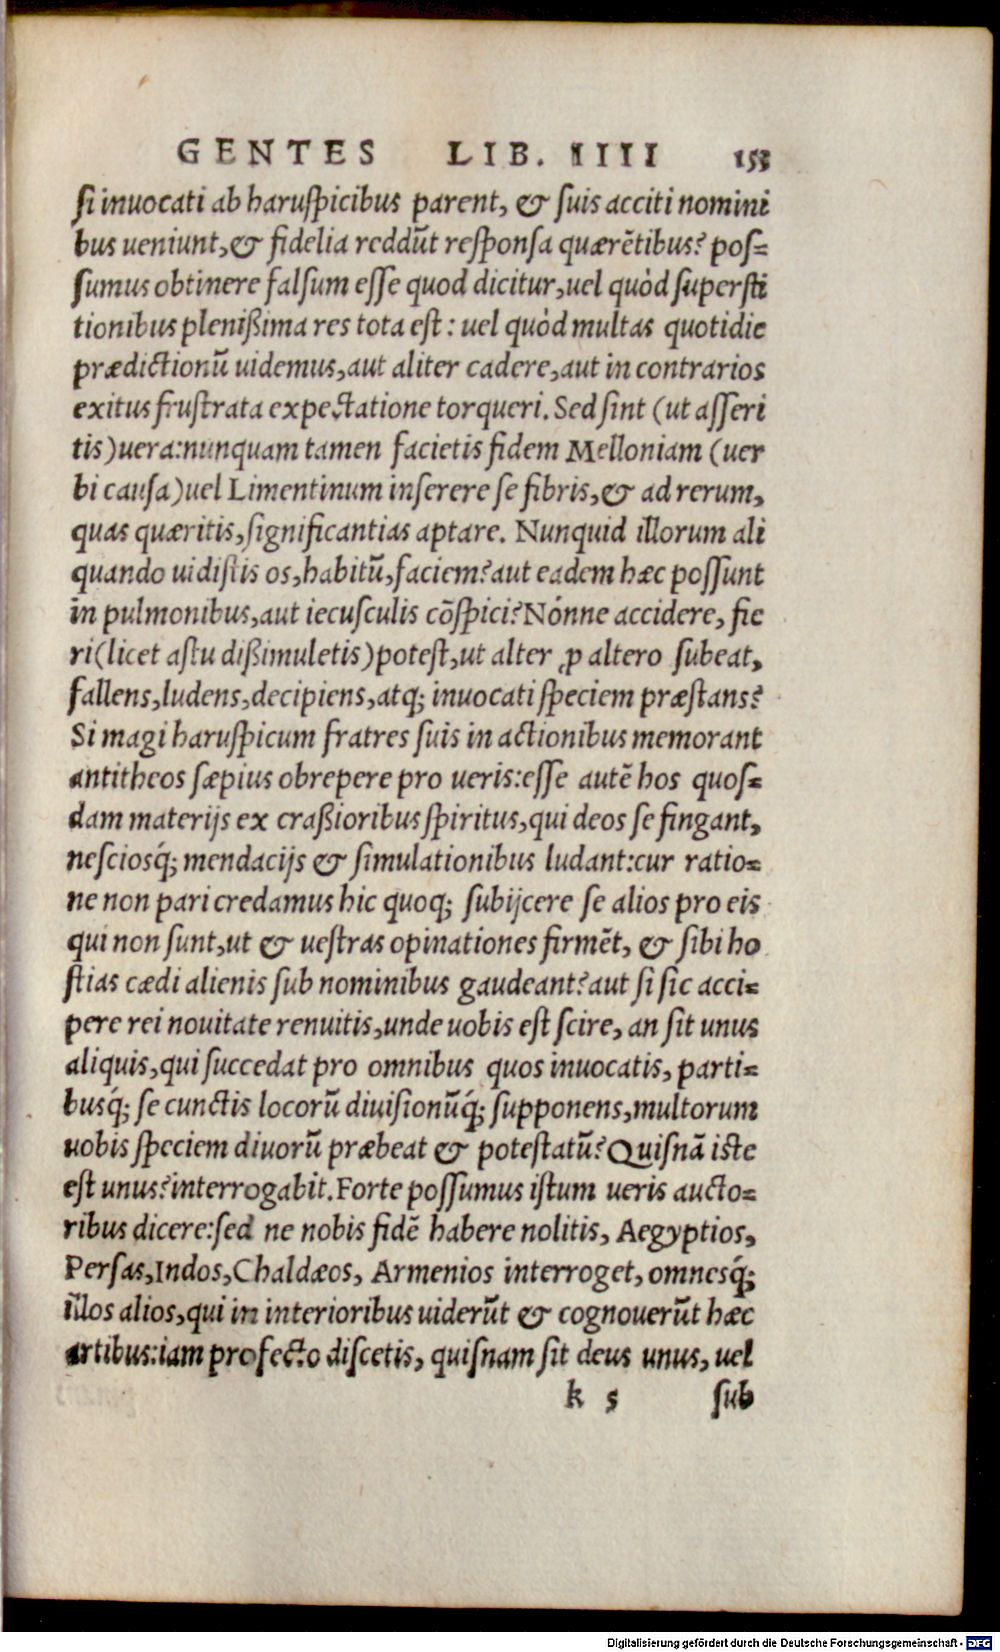 GENTES LIB. IIII 153
si inuocati ab haruspicibus parent, & suis acciti nomini
bus ueniunt, & fidelia reddũt responsa quærẽtibus? pos=
sumus obtinere falsum esse quod dicitur, uel quòd supersti
tionibus plenißima res tota est: uel quòd multas quotidie
prædictionũ uidemus, aut aliter cadere, aut in contrarios
exitus frustrata expectatione torqueri. Sed sint (ut asseri
tis) uera: nunquam tamen facietis fidem Melloniam (uer
bi causa) uel Limentinum inserere se fibris, & ad rerum,
quas quæritis, significantias aptare. Nunquid illorum ali
quando uidistis os, habitũ, faciem? aut eadem hæc possunt
in pulmonibus, aut iecusculis cõspici? Nónne accidere, fie
ri (licet astu dißimuletis) potest, ut alter ꝓ altero subeat,
fallens, ludens, decipiens, atq; inuocati speciem præstans?
Si magi haruspicum fratres suis in actionibus memorant
antitheos sæpius obrepere pro ueris: esse autẽ hos quos=
dam materijs ex craßioribus spiritus, qui deos se fingant,
nesciosq́; mendacijs & simulationibus ludant: cur ratio=
ne non pari credamus hic quoq; subijcere se alios pro eis
qui non sunt, ut & uestras opinationes firmẽt, & sibi ho
stias cædi alienis sub nominibus gaudeant? aut si sic acci=
pere rei nouitate renuitis, unde uobis est scire, an sit unus
aliquis, qui succedat pro omnibus quos inuocatis, parti=
busq́; se cunctis locorũ diuisionũq́; supponens, multorum
uobis speciem diuorũ præbeat & potestatũ? Quisnã iste
est unus? interrogabit. Forte possumus istum ueris aucto=
ribus dicere: sed ne nobis fidẽ habere nolitis, Aegyptios,
Persas, Indos, Chaldæos, Armenios interroget, omnesq́;
illos alios, qui in interioribus uiderũt & cognouerũt hæc
artibus: iam profecto discetis, quisnam sit deus unus, uel
k 5 sub
Digitalisierung gefördert durch die Deutsche Forschungsgemeinschaft - DFG